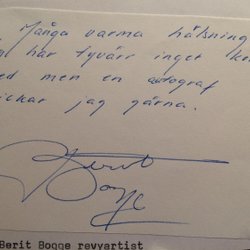 Många varma hälsning
har tyvärr inget k
ed men en autograf
ickar jag gärna.
Berit
Bogge
Berit Bogge revyartist